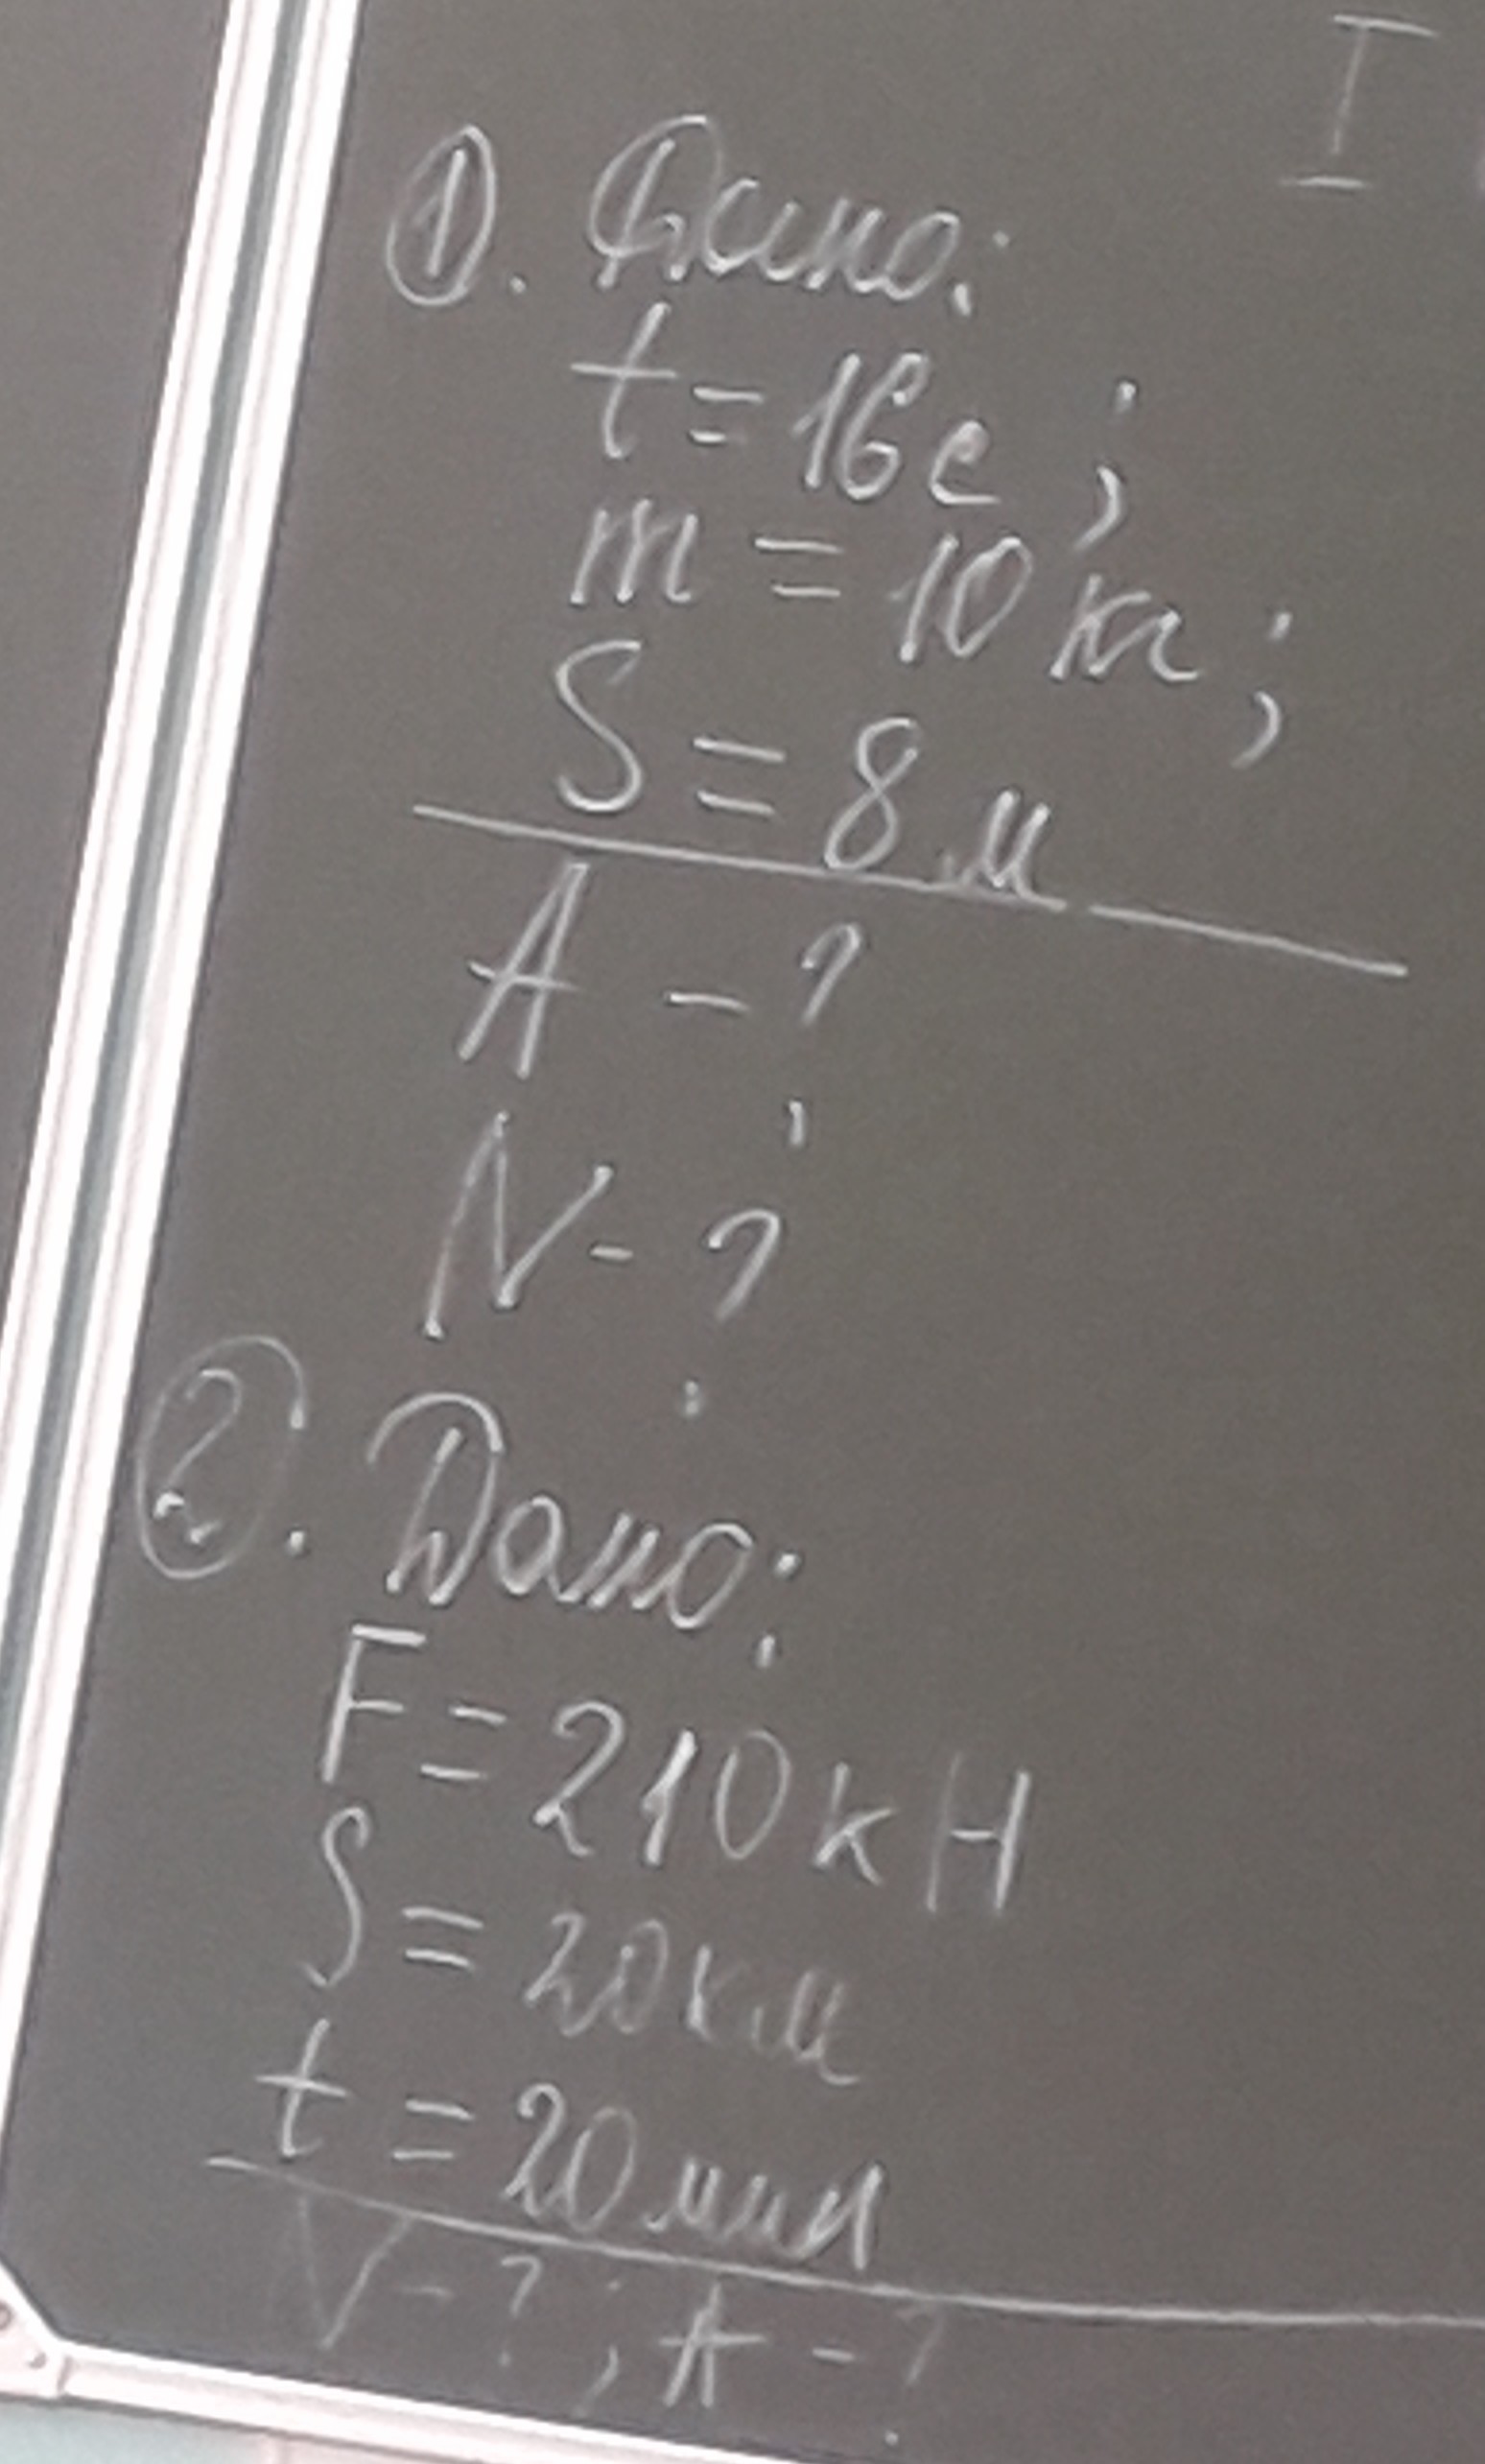 I
1. Дано:
t = 16 с ;
m = 10 кг ;
S = 8 м
A - ?
N - ?
2. Дано:
F = 210 кН
S = 20 км
t = 20 мин
N - ? ; A - ?